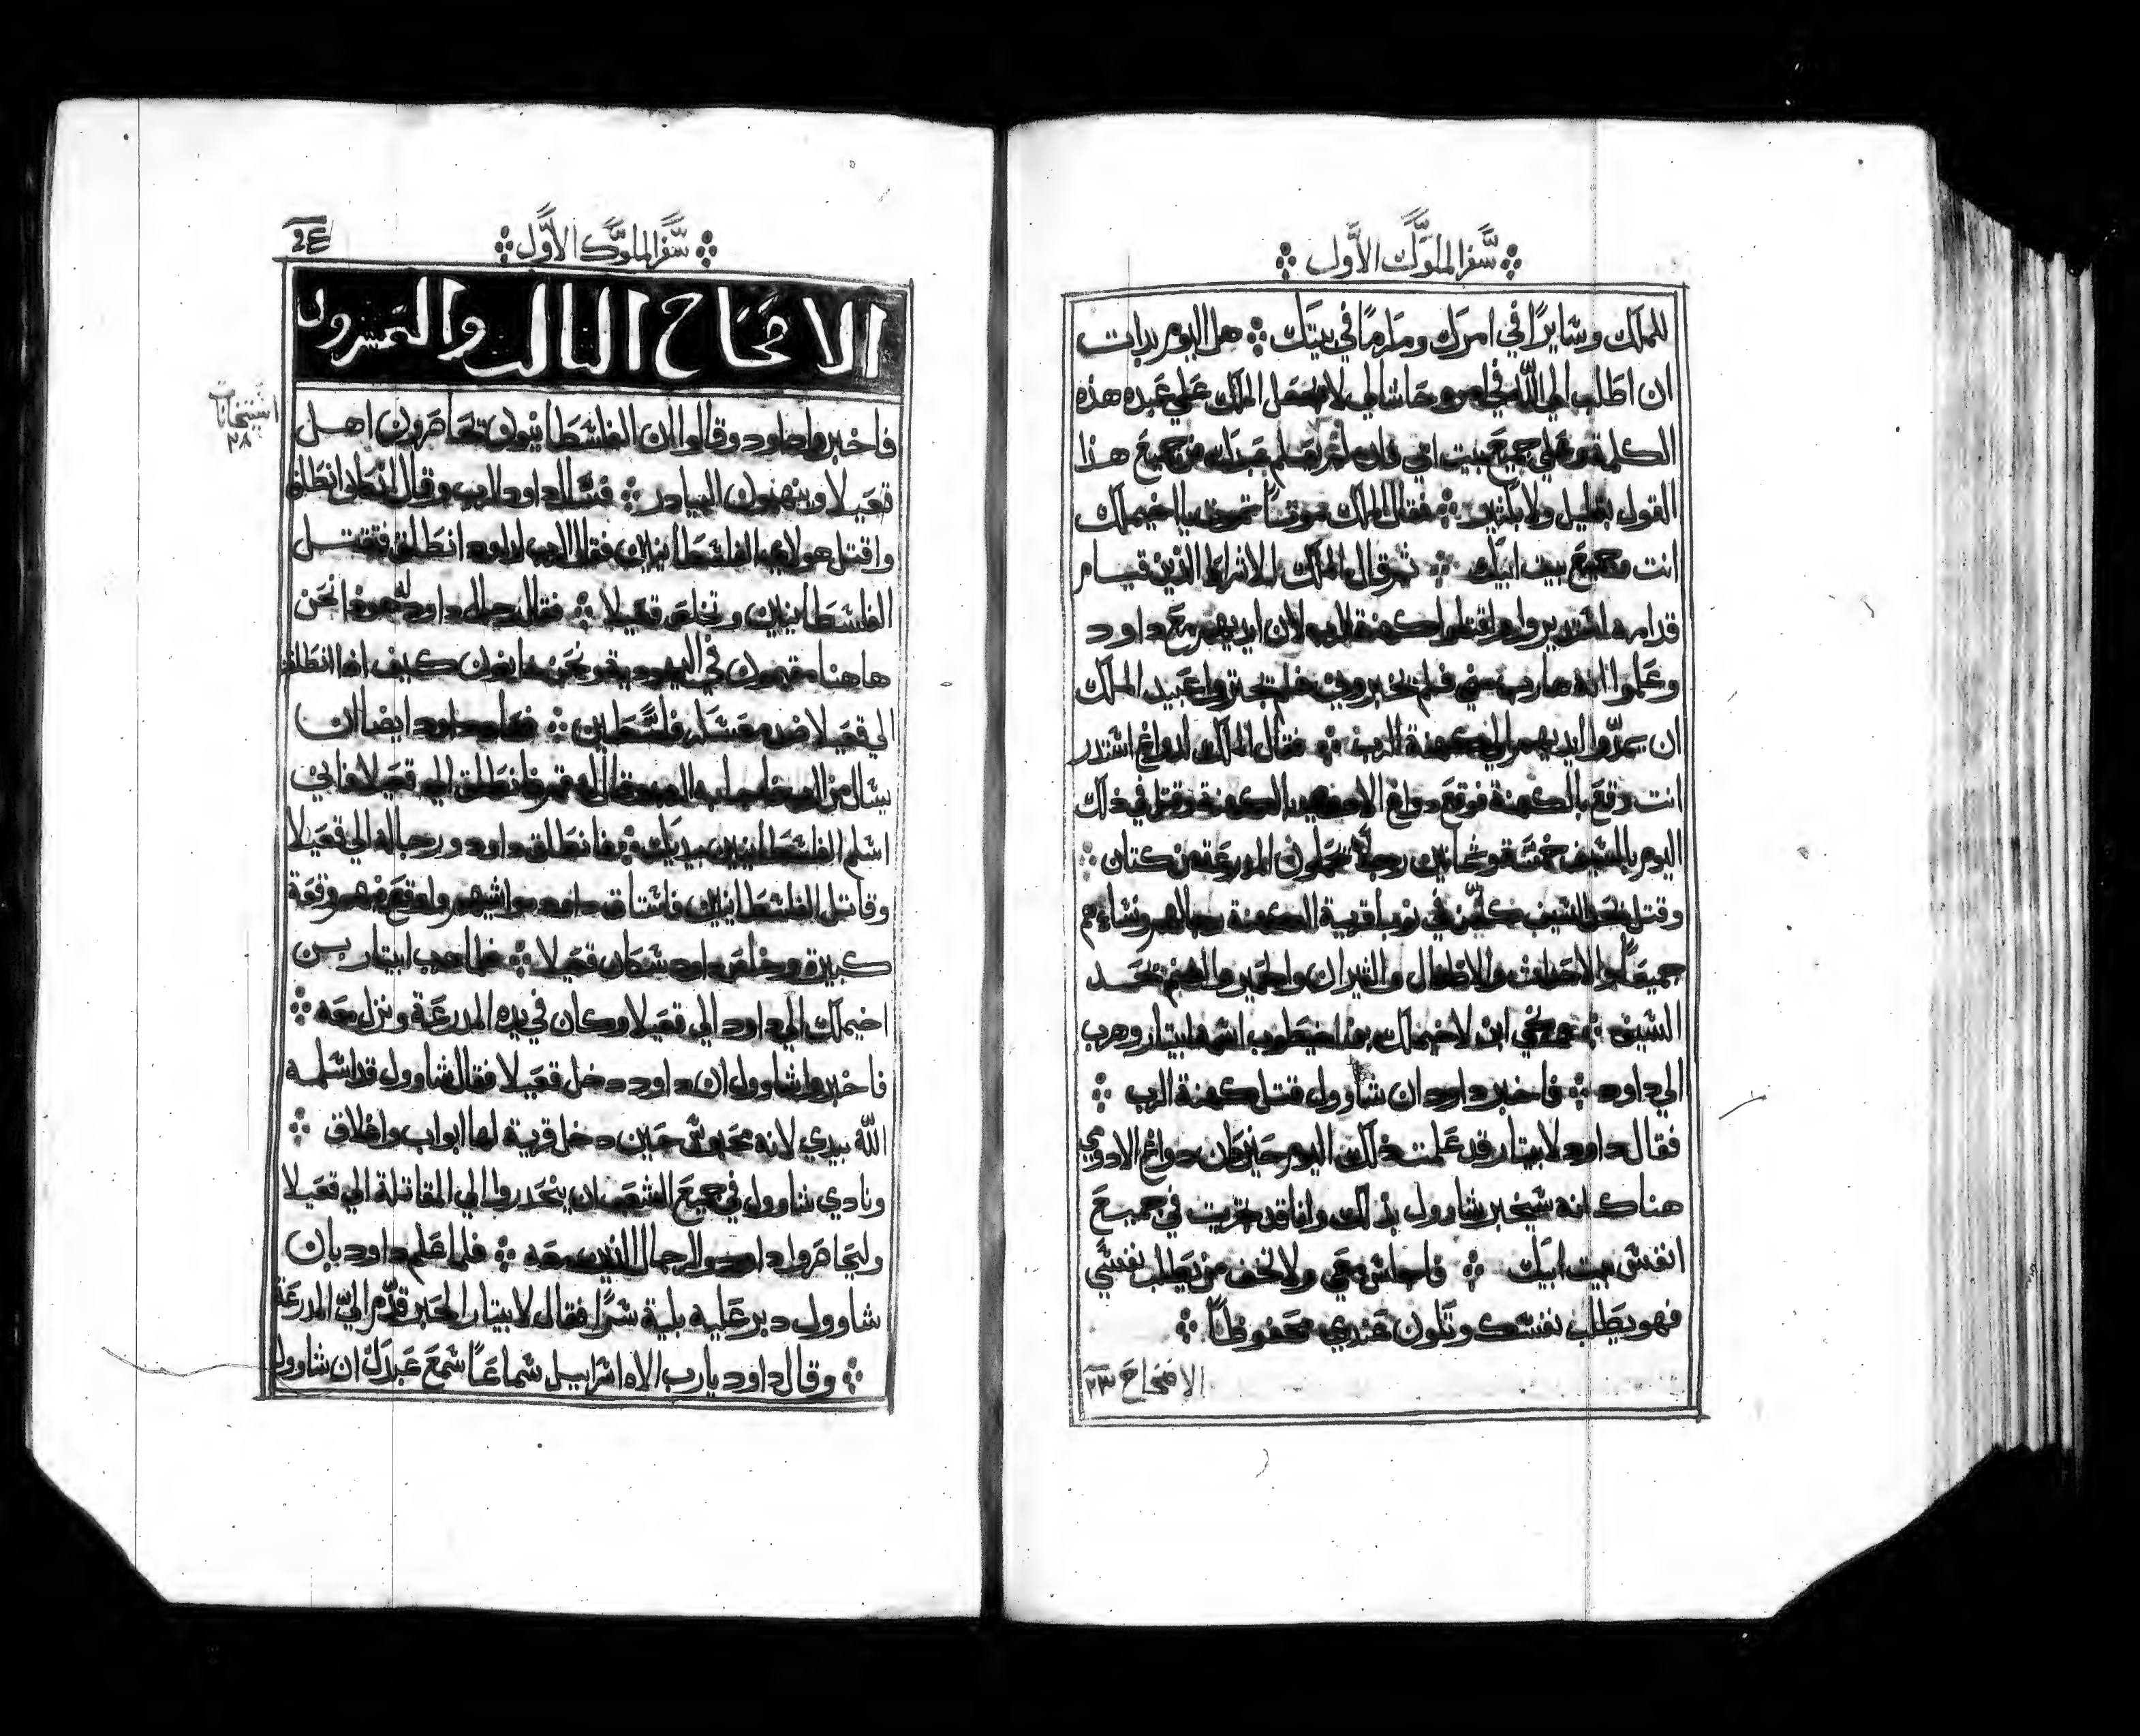 سفر الملوك الاول
للملك وسايرًا في امرك ومكرمًا في بيتك هل اليوم بدات
ان اطلب الي الله في امره حاشا لي لا يجعل الملك علي عبده هذه
الكلمة وعلي جميع بيت ابي فان لم يعلم عبدك من جميع هذا
القول بقليل ولا بكثير فقال الملك موتًا تموت يا اخيملك
انت وجميع بيت ابيك ثم قال الملك للاشراط الذين قيام
قدامه استديروا واقتلوا كهنة الرب لان ايديهم مع داود
وعلموا انه هارب مني فلم يخبروني فلم يجتروا عبيد الملك
ان يمدّوا ايديهم الي كهنة الرب فقال الملك لدواغ استدر
انت وقع بالكهنة فوقع دواغ الادومي بالكهنة وقتل في ذلك
اليوم بالسيف خمسة وثمانين رجلًا يحملون المدرعة من كتان
وقتل بحد السيف في نوبا قرية الكهنة رجالهم ونساءهم
جميعًا والاحداث والاطفال والثيران والحمير والغنم بحد
السيف ونجي ابن لاخيملك بن اخيطوب اسمه ابيتار وهرب
الي داود فاخبر داود ان شاوول قتل كهنة الرب
فقال داود لابيتار قد علمت ذلك اليوم حين كان دواغ الادومي
هناك انه سيخبر شاوول بذلك وانا قد خزيت في جميع
انفس بيت ابيك فاجلس معي ولا تخف من يطلب نفسي
فهو يطلب نفسك وتكون عندي محفوظًا
الافتحاح ٢٣
سفر الملوك الاول
الافتحاح الثالث والعشرون
استيخانات
٢٨
فاخبروا داود وقالوا ان الفلسطانيون تحاصرون اهل
قعيلا وينهبون البيادر فسال داود الرب وقال انطلق
واقتل هولاي الفلسطانيين فقال الرب لداود انطلق فتقتل
الفلسطانيين وتخلص قعيلا فقال رجال داود له هوذا نحن
هاهنا مقيمون في اليهودية ونحن خايفون كيف اذا انطلقنا
الي قعيلا ضد معسكر فلسطين فعاد داود ايضا ان
يسال من الرب فاجابه الرب وقال له قم فانطلق الي قعيلا فاني
اسلم الفلسطانيين بيديك فانطلق داود ورجاله الي قعيلا
وقاتل الفلسطانيين فاستاق داود مواشيهم واوقع بهم وقعة
كبيرة وخلص داود سكان قعيلا فلما هرب ابيتار بن
اخيملك الي داود الي قعيلا وكان في يده المدرعة ونزل معه
فاخبروا شاوول ان داود دخل قعيلا فقال شاوول قد اسلمه
الله بيدي لانه محبوس حين دخل قرية لها ابواب واغلاق
ونادي شاوول في جميع الشعب ان ينحدروا الي المقاتلة الي قعيلا
وليحاصروا داود والرجال الذين معه فلما علم داود بان
شاوول دبر عليه بلية شرًا فقال لابيتار الحبر قدّم اليّ المدرعة
وقال داود يا رب الاه اسراييل سماعًا سمع عبدك ان شاوول